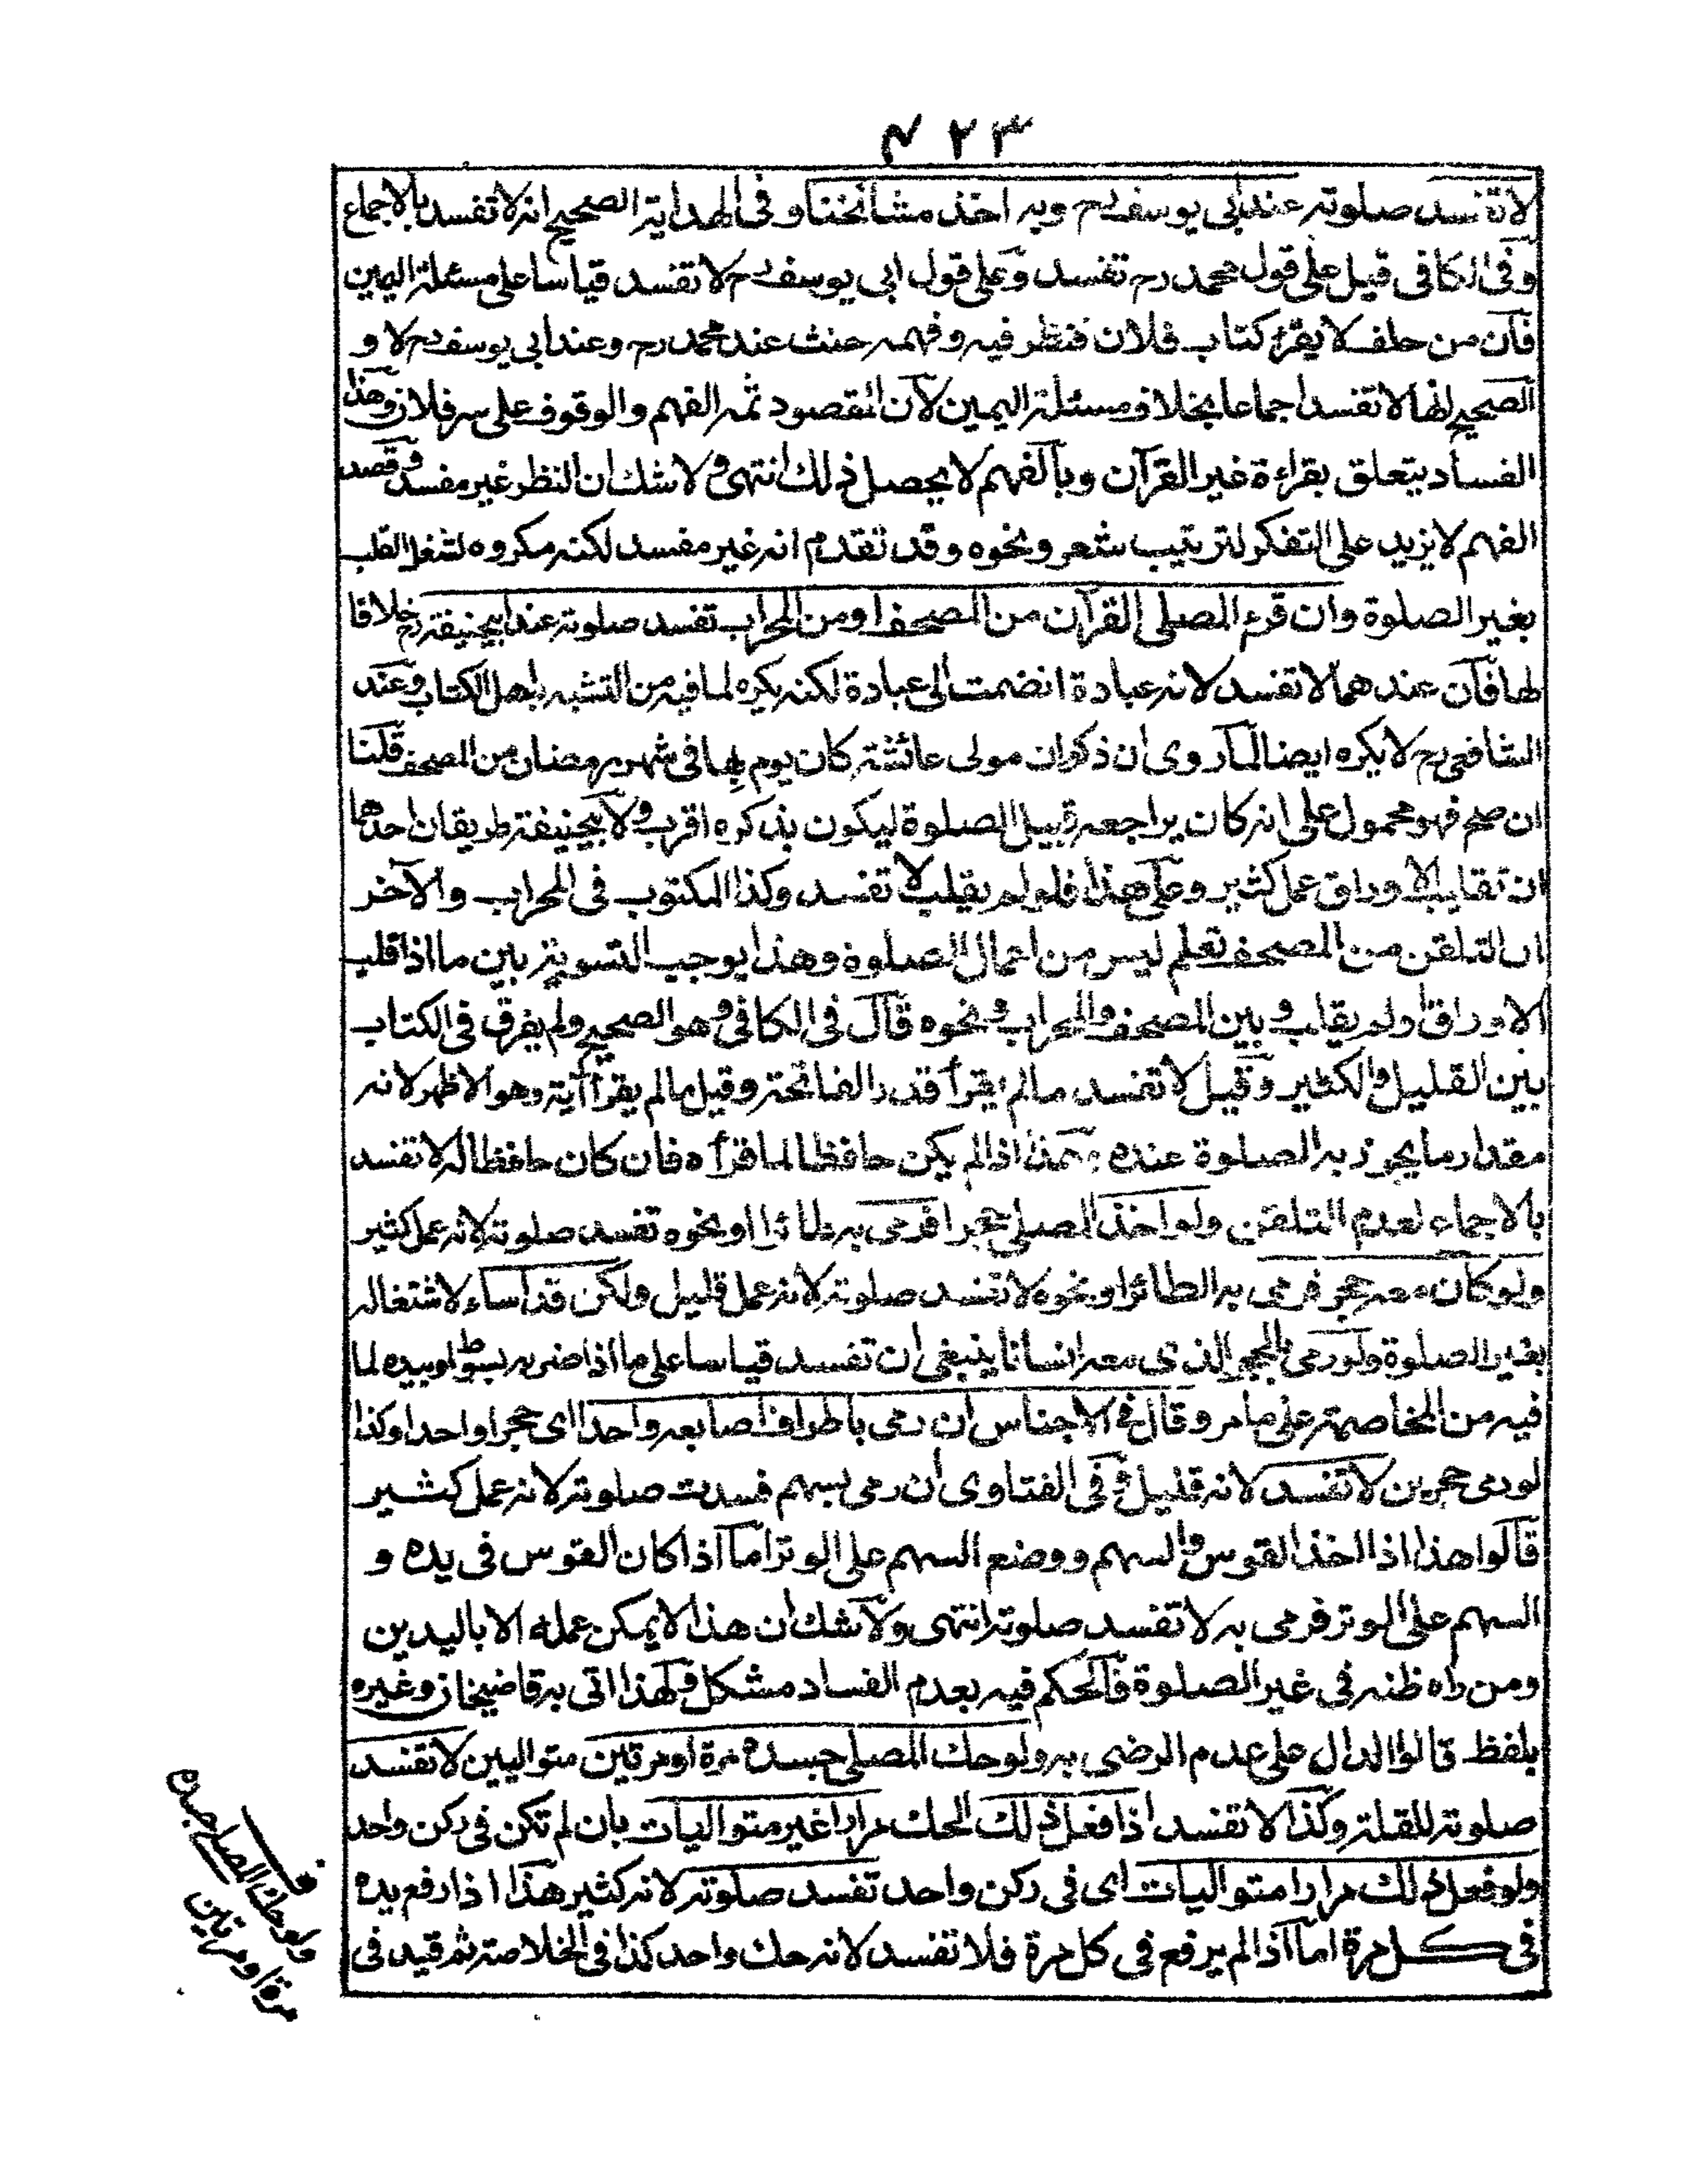 ۴۲۳
لا تفسد صلوته عند ابى يوسف رح وبه اخذ مشائخنا وفى الهداية الصحيح انه لا تفسد بالاجماع
وفى الكافى قيل على قول محمد رح تفسد وعلى قول ابى يوسف رح لا تفسد قياسا على مسئلة اليمين
فان من حلف لا يقرء كتاب فلان فنظر فيه وفهمه حنث عند محمد رح وعند ابى يوسف رح لا و
الصحيح انها لا تفسد اجماعا بخلاف مسئلة اليمين لان المقصود ثمه الفهم والوقوف على سر فلان وهذا
الفساد يتعلق بقراءة غير القرآن وبالفهم لا يحصل ذلك انتهى ولا شك ان النظر غير مفسد وقصد
الفهم لا يزيد على التفكر لترتيب شعر ونحوه وقد تقدم انه غير مفسد لكنه مكروه لشغل القلب
بغير الصلوة وان قرء المصلى القرآن من المصحف او من المحراب تفسد صلوته عند ابيحنيفة رح خلافا
لهما فان عندهما لا تفسد لانه عبادة انضمت الى عبادة لكنه يكره لما فيه من التشبه باهل الكتاب وعند
الشافعى رح لا يكره ايضا لما روى ان ذكوان مولى عائشة كان يوم بها فى شهر رمضان من المصحف قلنا
ان صح فهو محمول على انه كان يراجعه قبيل الصلوة ليكون بذكره اقرب ولابيحنيفة طريقان احدهما
ان تقليب الاوراق عمل كثير وعلى هذا فلو لم يقلب لا تفسد وكذا المكتوب فى المحراب والآخر
ان التلقن من المصحف تعلم ليس من اعمال الصلوة وهذا يوجب التسوية بين ما اذا قلب
الاوراق او لم يقلب وبين المصحف والمحراب ونحوه قال فى الكافى وهو الصحيح ولم يفرق فى الكتاب
بين القليل والكثير وقيل لا تفسد ما لم يقرأ قدر الفاتحة وقيل ما لم يقرأ آية وهو الاظهر لانه
مقدار ما يجوز به الصلوة عنده وهذا اذا لم يكن حافظا لما قرأه فان كان حافظا له لا تفسد
بالاجماع لعدم التلقن ولو اخذ المصلى حجرا فرمى به طائرا او نحوه تفسد صلوته لانه عمل كثير
ولو كان معه حجر فرمى به الطائر او نحوه لا تفسد صلوته لانه عمل قليل ولكن قد اساء لاشتغاله
بغير الصلوة ولو رمى بالحجر الذى معه انسانا ينبغى ان تفسد قياسا على ما اذا ضربه بسوط او بيده لما
فيه من المخاصمة على ما مر وقال فى الاجناس ان رمى باطراف اصابعه واحدا اى حجرا واحدا وكذا
لو رمى حجرين لا تفسد لانه قليل وفى الفتاوى ان رمى بسهم فسدت صلوته لانه عمل كثير
قالوا هذا اذا اخذ القوس والسهم ووضع السهم على الوتر اما اذا كان القوس فى يده و
السهم على الوتر فرمى به لا تفسد صلوته انتهى ولا شك ان هذا لا يمكن عمله الا باليدين
ومن راه ظنه فى غير الصلوة فالحكم فيه بعدم الفساد مشكل ولهذا اتى به قاضيخان وغيره
بلفظ قالوا الدال على عدم الرضى به ولو حك المصلى جسده مرة او مرتين متواليين لا تفسد
صلوته للقلة وكذا لا تفسد اذا فعل ذلك الحك مرارا غير متواليات بان لم تكن فى ركن واحد
ولو فعل ذلك مرارا متواليات اى فى ركن واحد تفسد صلوته لانه كثير هذا اذا رفع يده
فى كل مرة اما اذا لم يرفع فى كل مرة فلا تفسد لانه حك واحد كذا فى الخلاصة ثم قيد فى
ولو حك المصلى جسده
مرة او مرتين